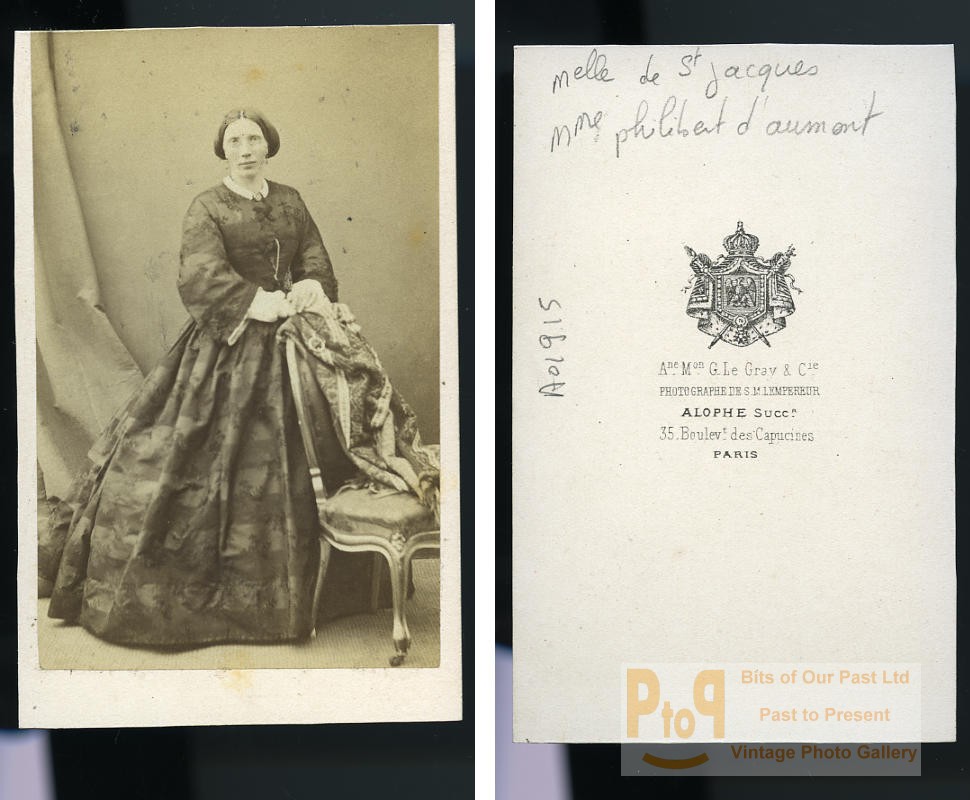 Melle de St Jacques
Mme philibert d'aumont
A01915
Ane Mon G. Le Gray & Cie
PHOTOGRAPHE DE S. M. L'EMPEREUR
ALOPHE Succr
35. Boulevt des Capucines
PARIS
PtoP
Bits of Our Past Ltd
Past to Present
Vintage Photo Gallery